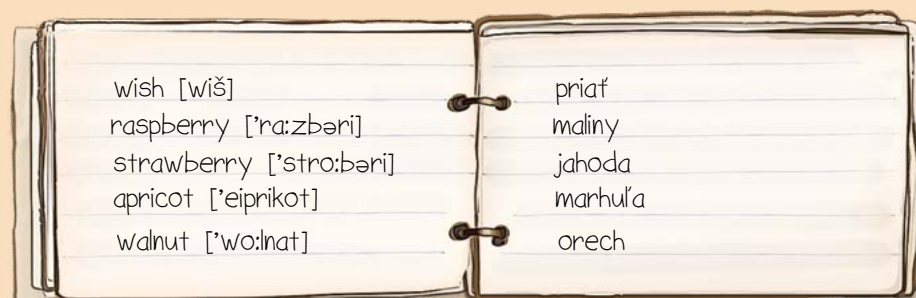 wish [wiš]
raspberry ['ra:zbəri]
strawberry ['stro:bəri]
apricot ['eiprikot]
walnut ['wo:lnat]
priať
maliny
jahoda
marhuľa
orech